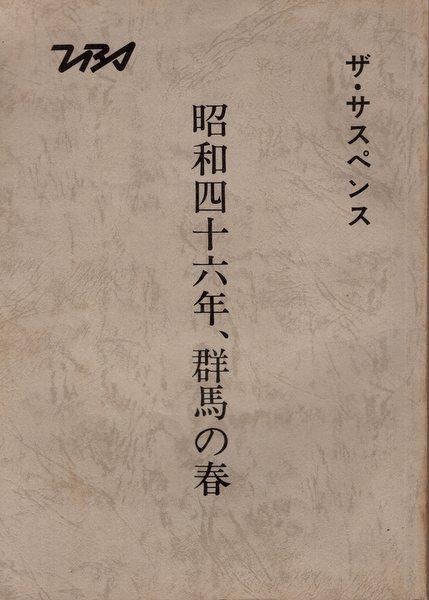 ザ・サスペンス
昭和四十六年、群馬の春
TBS